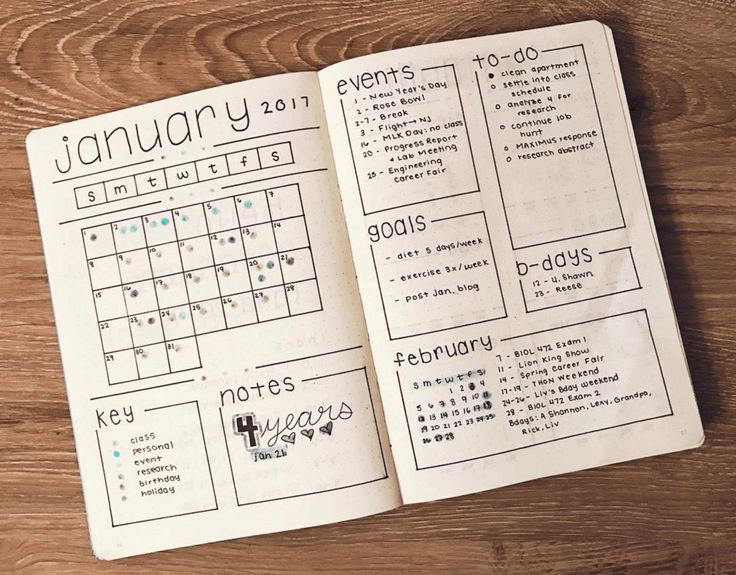 january 2017
s m t w t f s
1 2 3 4 5 6 7
8 9 10 11 12 13 14
15 16 17 18 19 20 21
22 23 24 25 26 27 28
29 30 31
key
class
personal
event
research
birthday
holiday
notes
4 years
Jan 21
events
1 - New Year's Day
2 - Rose Bowl
2-7 - Break
3 - Flight → NJ
16 - MLK Day: no class
20 - Progress Report
& Lab Meeting
25 - Engineering
Career Fair
to-do
clean apartment
settle into class
schedule
analyze 4 for
research
continue job
hunt
MAXIMUS response
research abstract
goals
- diet 5 days/week
- exercise 3x/week
- post Jan. blog
b-days
12 - U. Shawn
23 - Reese
february
s m t w t f s
1 2 3 4
5 6 7 8 9 10 11
12 13 14 15 16 17 18
19 20 21 22 23 24 25
26 27 28
7 - BIOL 472 Exam 1
11 - Lion King Show
14 - Spring Career Fair
17-19 - THON Weekend
24-26 - Liv's Bday Weekend
28 - BIOL 472 Exam 2
Bdays: A Shannon, Lexy, Grandpa,
Rick, Liv